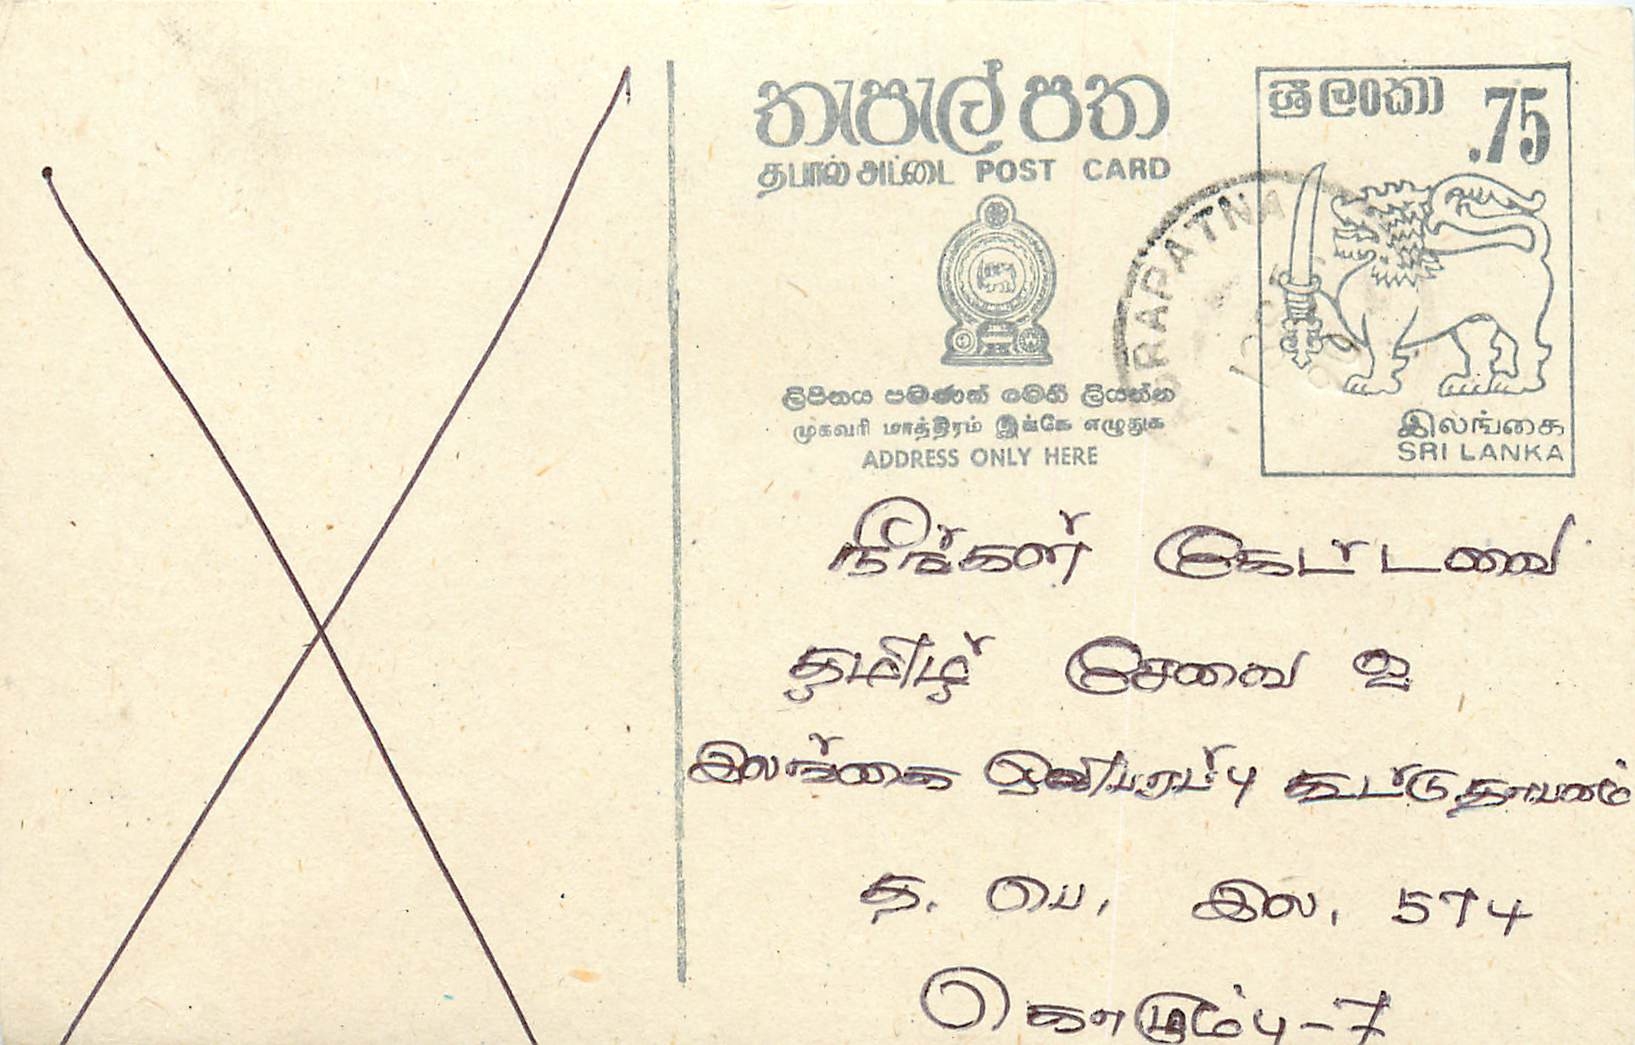 තැපැල් පත
தபால் அட்டை POST CARD
ශ්‍රී ලංකා .75
இலங்கை
SRI LANKA
RAPATNA
ලිපිනය පමණක් මෙහි ලියන්න
முகவரி மாத்திரம் இங்கே எழுதுக
ADDRESS ONLY HERE
நீங்கள் கேட்டவை
தமிழ் சேவை 2
இலங்கை ஒலிபரப்பு கூட்டுதாபனம்
த. பெ, இல, 574
கொழும்பு-7